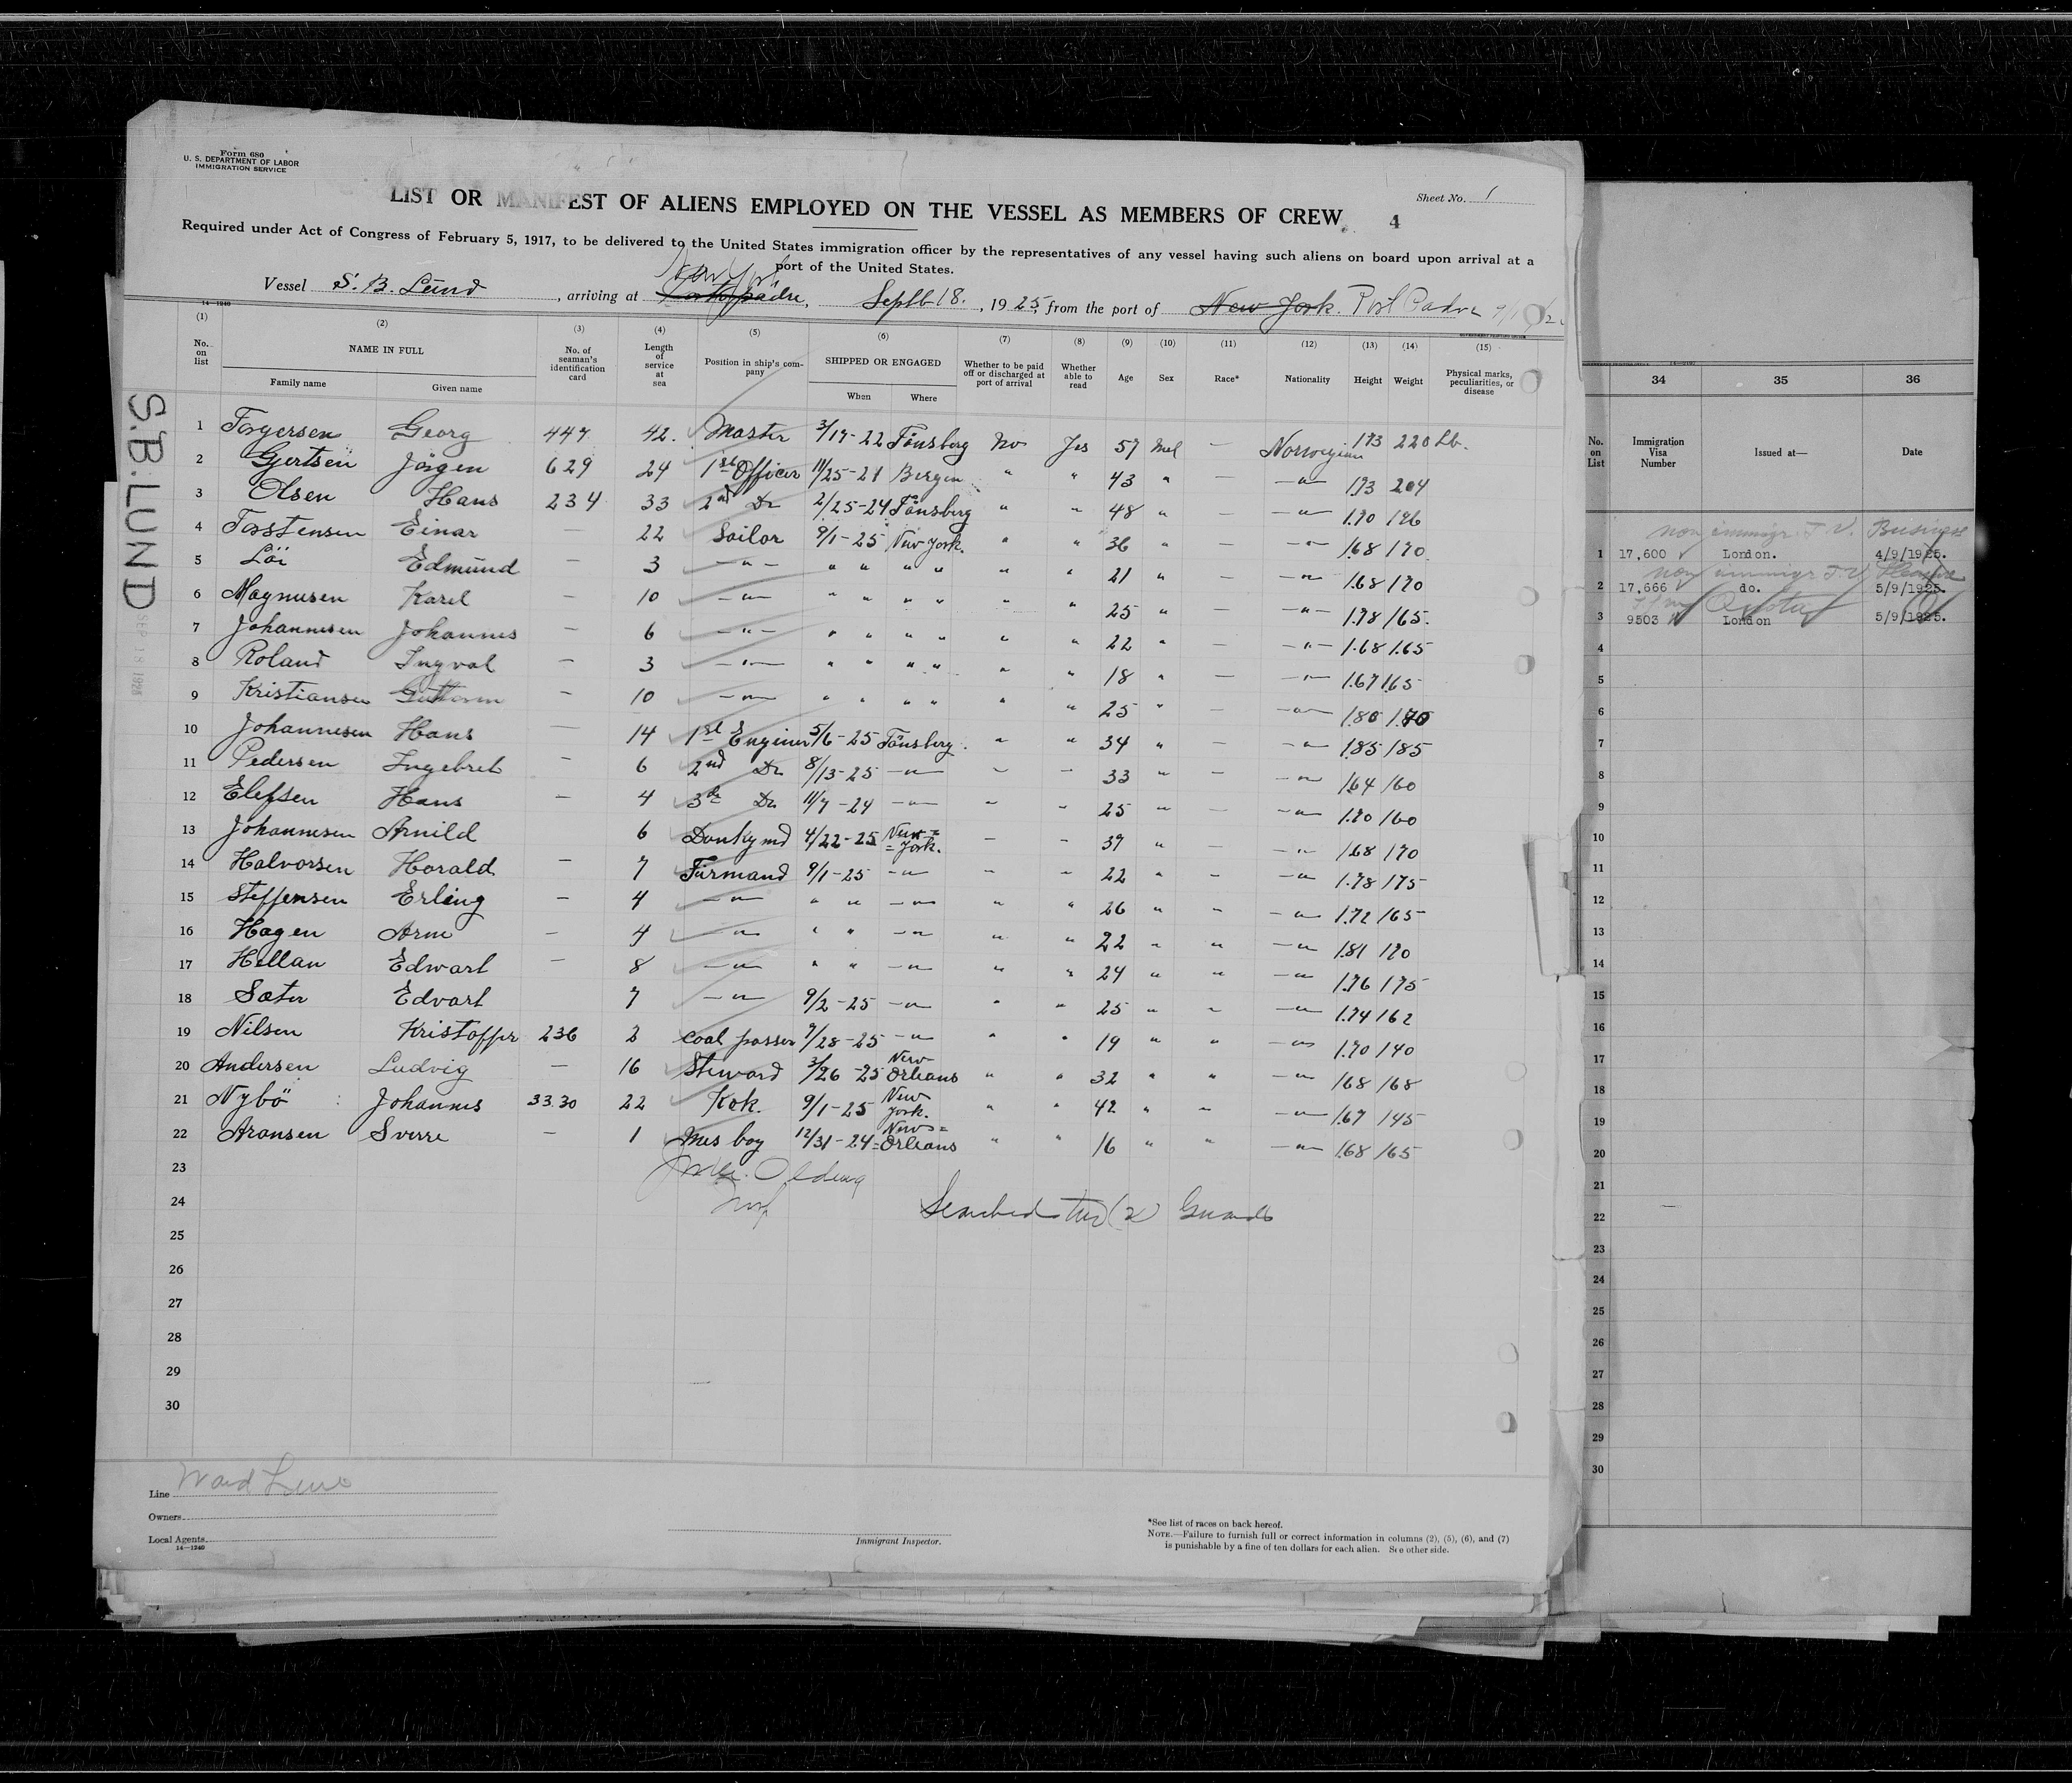 Form 680
U. S. DEPARTMENT OF LABOR
IMMIGRATION SERVICE
Sheet No. 1
LIST OR MANIFEST OF ALIENS EMPLOYED ON THE VESSEL AS MEMBERS OF CREW
4
Required under Act of Congress of February 5, 1917, to be delivered to the United States immigration officer by the representatives of any vessel having such aliens on board upon arrival at a
port of the United States.
New York
Vessel S. B. Lund, arriving at Septb 18., 1925, from the port of New York. Port Padre
14-1240
(1) (2) (3) (4) (5) (6) (7) (8) (9) (10) (11) (12) (13) (14) (15)
No. on list NAME IN FULL Family name Given name No. of seaman's identification card Length of service at sea Position in ship's company SHIPPED OR ENGAGED When Where Whether to be paid off or discharged at port of arrival Whether able to read Age Sex Race* Nationality Height Weight Physical marks, peculiarities, or disease
S.B. LUND
SEP 18 1925
1 Torgersen Georg 447 42. Master 3/17-22 Tönsberg No Yes 57 Mel — Norwegian 173 220 Lb.
2 Gjertsen Jörgen 629 24 1st Officer 11/25-21 Bergen " " 43 " — —"— 173 204
3 Olsen Hans 234 33 2nd Do 2/25-24 Tönsberg " " 48 " — —"— 1.70 176
4 Torstensen Einar — 22 Sailor 9/1-25 New York. " " 36 " — —"— 1.68 170
5 Löi Edmund — 3 —"— " " " " " " 21 " — —"— 1.68 170
6 Magnusen Karel — 10 —"— " " " " " " 25 " — —"— 1.78 165.
7 Johannesen Johannes — 6 —"— " " " " " " 22 " — —"— 1.68 165
8 Roland Ingval — 3 —"— " " " " " " 18 " — —"— 1.67 165
9 Kristiansen Guttorm — 10 —"— " " " " " " 25 " — —"— 1.80 170
10 Johannesen Hans — 14 1st Enginer 5/6-25 Tönsberg. " " 34 " — —"— 1.85 185
11 Pedersen Ingebret — 6 2nd Do 8/13-25 —"— " " 33 " — —"— 1.64 160
12 Elefsen Hans — 4 3de Do 11/7-24 —"— " " 25 " — —"— 1.70 160
13 Johannesen Arnild 6 Donkymd 4/22-25 New=York. — " 37 " — —"— 1.68 170
14 Halvorsen Harald — 7 Firmand 9/1-25 —"— " " 22 " — —"— 1.78 175
15 Steffensen Erling — 4 —"— " " —"— " " 26 " " —"— 1.72 165
16 Hagen Arne — 4 —"— " " —"— " " 22 " " —"— 1.81 170
17 Hellan Edwart — 8 —"— " " —"— " " 24 " " —"— 1.76 175
18 Sæter Edvart 7 —"— 9/2-25 —"— " " 25 " " —"— 1.74 162
19 Nilsen Kristoffer 236 2 Coal passer 7/28-25 —"— " " 19 " " —"— 1.70 140
20 Andersen Ludvig — 16 Steward 3/26-25 New Orleans " " 32 " " —"— 1.68 168
21 Nybö Johannes 33.30 22 Kok. 9/1-25 New York. " " 42 " " —"— 1.67 145
22 Aronsen Sverre — 1 Mes boy 12/31-24 New=Orleans " " 16 " " —"— 1.68 165
23
24 Searched two (2) Guards
25
26
27
28
29
30
Line Ward Line
Owners
Local Agents
14-1240
Immigrant Inspector.
*See list of races on back hereof.
NOTE.—Failure to furnish full or correct information in columns (2), (5), (6), and (7)
is punishable by a fine of ten dollars for each alien. See other side.
34 35 36
No. on List Immigration Visa Number Issued at— Date
non immigr. T.V. Business
1 17,600 London. 4/9/1925.
non immigr T.V.
2 17,666 do. 5/9/1925.
3 9503 London 5/9/1925.
4
5
6
7
8
9
10
11
12
13
14
15
16
17
18
19
20
21
22
23
24
25
26
27
28
29
30